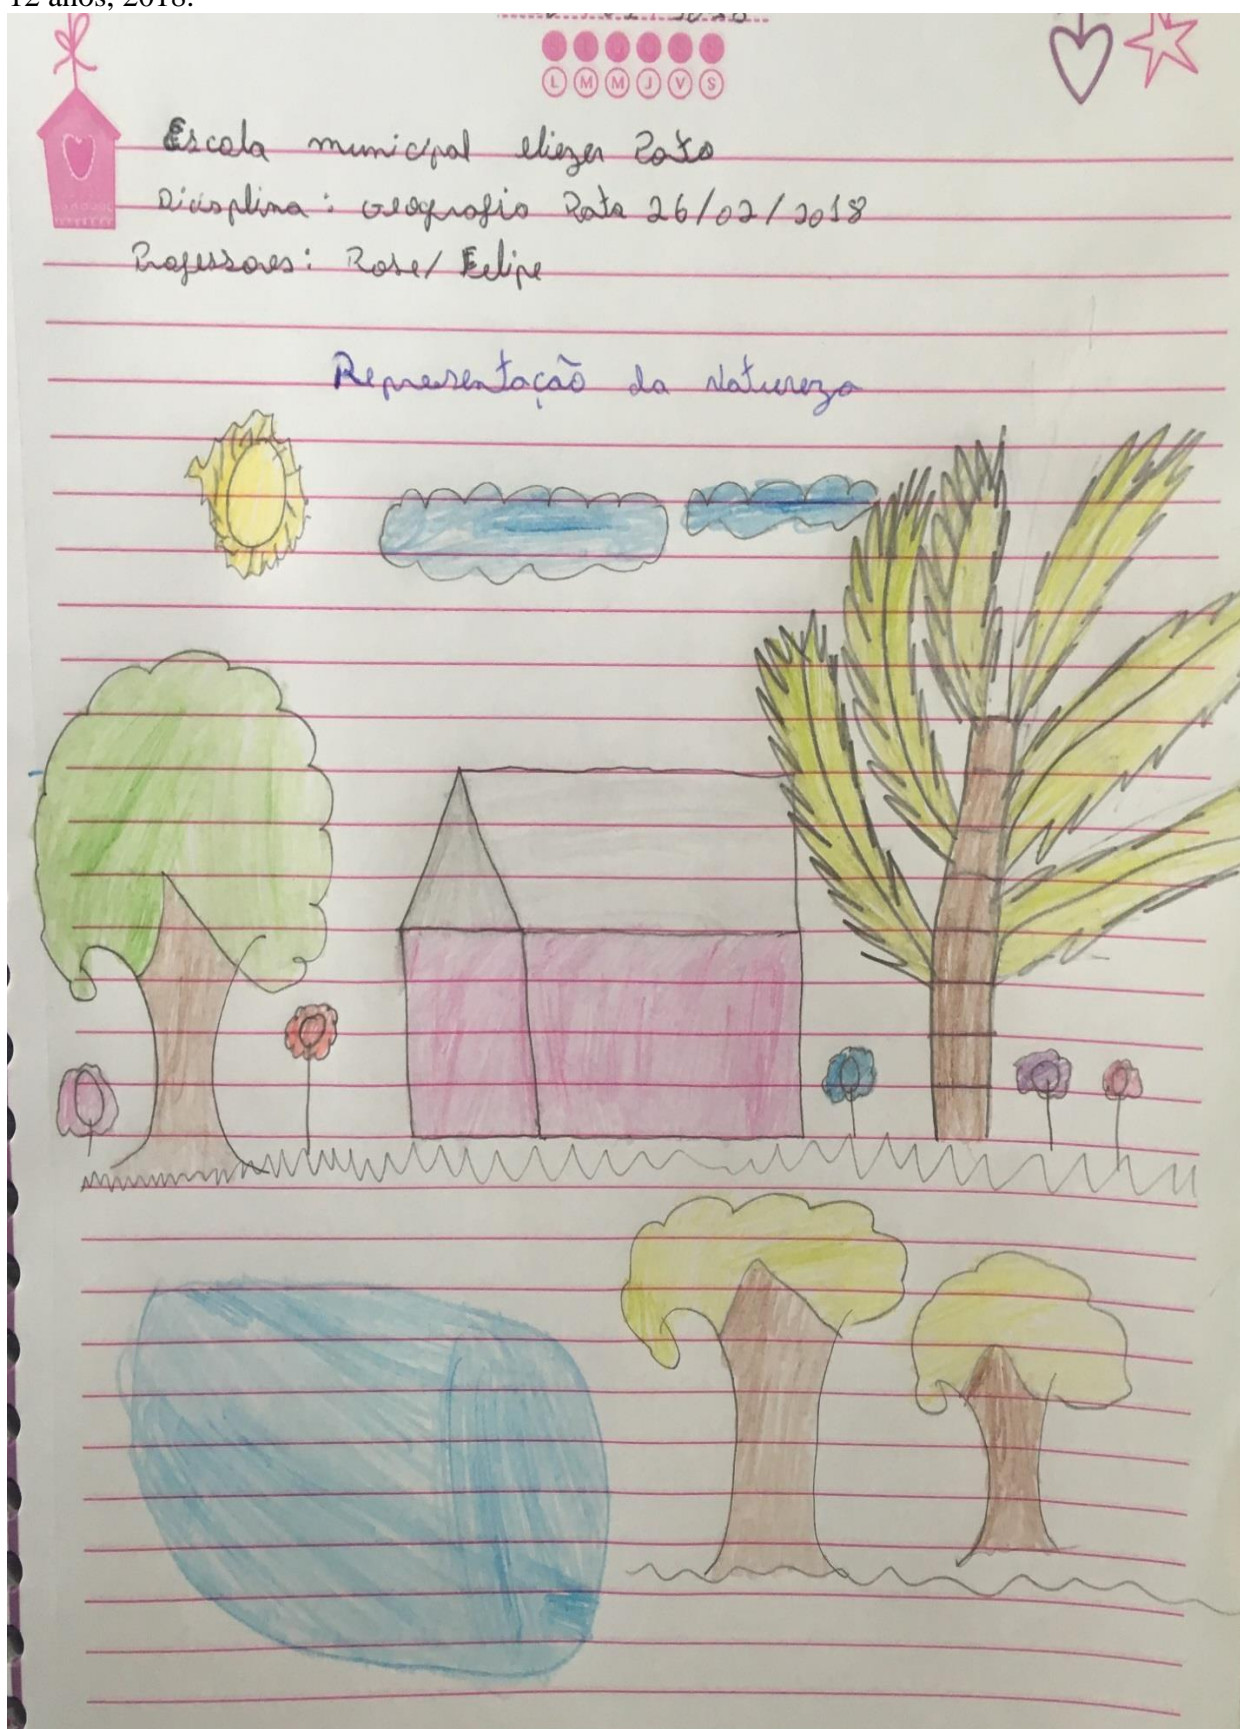 12 anos, 2018.
L M M J V S
Escola municipal eliezer Porto
Diciplina: Geografia Data 26/02/2018
Professores: Rose/ Felipe
Representação da Natureza